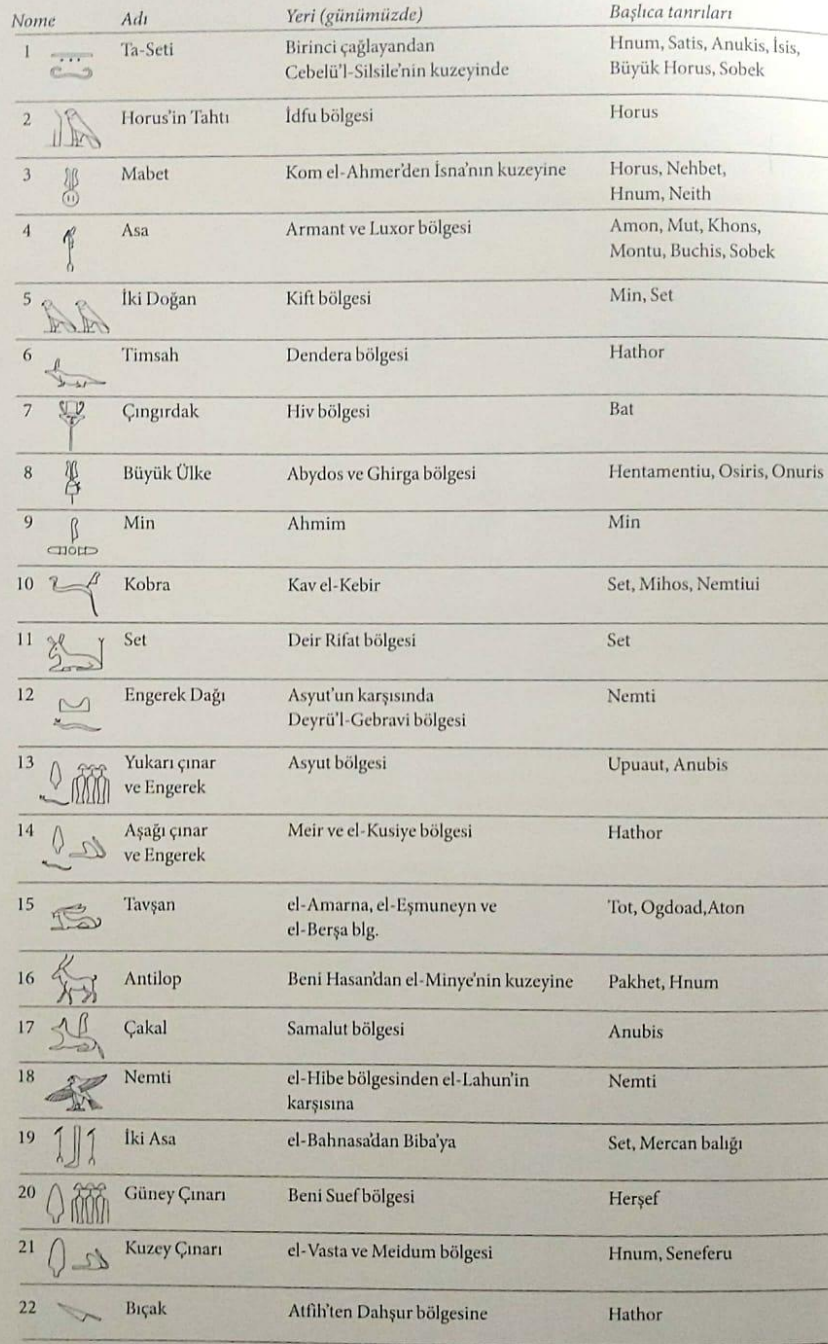 Nome Adı Yeri (günümüzde) Başlıca tanrıları
1 Ta-Seti Birinci çağlayandan Hnum, Satis, Anukis, İsis,
Cebelü'l-Silsile'nin kuzeyinde Büyük Horus, Sobek
2 Horus'in Tahtı İdfu bölgesi Horus
3 Mabet Kom el-Ahmer'den İsna'nın kuzeyine Horus, Nehbet,
Hnum, Neith
4 Asa Armant ve Luxor bölgesi Amon, Mut, Khons,
Montu, Buchis, Sobek
5 İki Doğan Kift bölgesi Min, Set
6 Timsah Dendera bölgesi Hathor
7 Çıngırdak Hiv bölgesi Bat
8 Büyük Ülke Abydos ve Ghirga bölgesi Hentamentiu, Osiris, Onuris
9 Min Ahmim Min
10 Kobra Kav el-Kebir Set, Mihos, Nemtiui
11 Set Deir Rifat bölgesi Set
12 Engerek Dağı Asyut'un karşısında Nemti
Deyrü'l-Gebravi bölgesi
13 Yukarı çınar Asyut bölgesi Upuaut, Anubis
ve Engerek
14 Aşağı çınar Meir ve el-Kusiye bölgesi Hathor
ve Engerek
15 Tavşan el-Amarna, el-Eşmuneyn ve Tot, Ogdoad,Aton
el-Berşa blg.
16 Antilop Beni Hasan'dan el-Minye'nin kuzeyine Pakhet, Hnum
17 Çakal Samalut bölgesi Anubis
18 Nemti el-Hibe bölgesinden el-Lahun'in Nemti
karşısına
19 İki Asa el-Bahnasa'dan Biba'ya Set, Mercan balığı
20 Güney Çınarı Beni Suef bölgesi Herşef
21 Kuzey Çınarı el-Vasta ve Meidum bölgesi Hnum, Seneferu
22 Bıçak Atfih'ten Dahşur bölgesine Hathor